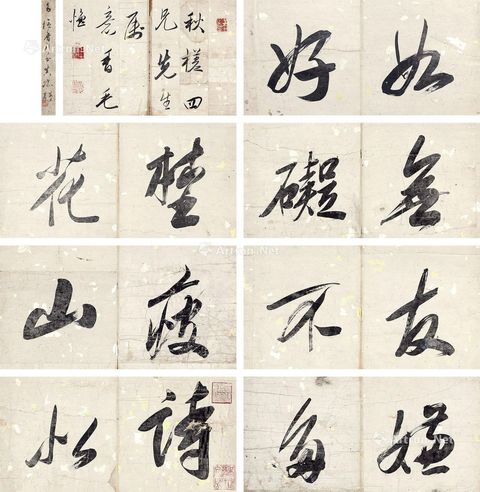 秋槎四
兄先生
屬
意香毛
懷
如好
埜花
無礙
瘦山
友不
詩似
嫌多
Artron.Net